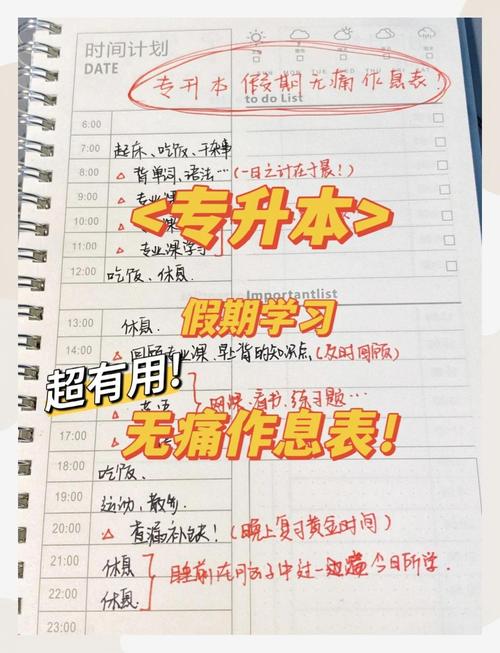 时间计划
DATE
专升本 假期无痛作息表!
to do List
6:00
7:00 起床、吃饭、干杂事
8:00 △ 背单词、语法… (一日之计在于晨!)
9:00 △ 专业课
<专升本>
10:00 △ 课
11:00 △ 专业课学习
12:00 吃饭、休息
Importantlist
13:00 休息
假期学习
14:00 △ 回顾专业课、早上背的知识点 (及时回顾)
超有用!
网课、看书、练习题…
无痛作息表!
17:00 △
18:00 吃饭、
19:00 运动、散步
20:00 △ 查漏补缺! (晚上复习黄金时间)
21:00 休息
睡前在脑子中过一遍 今日所学.
22:00 休息
23:00